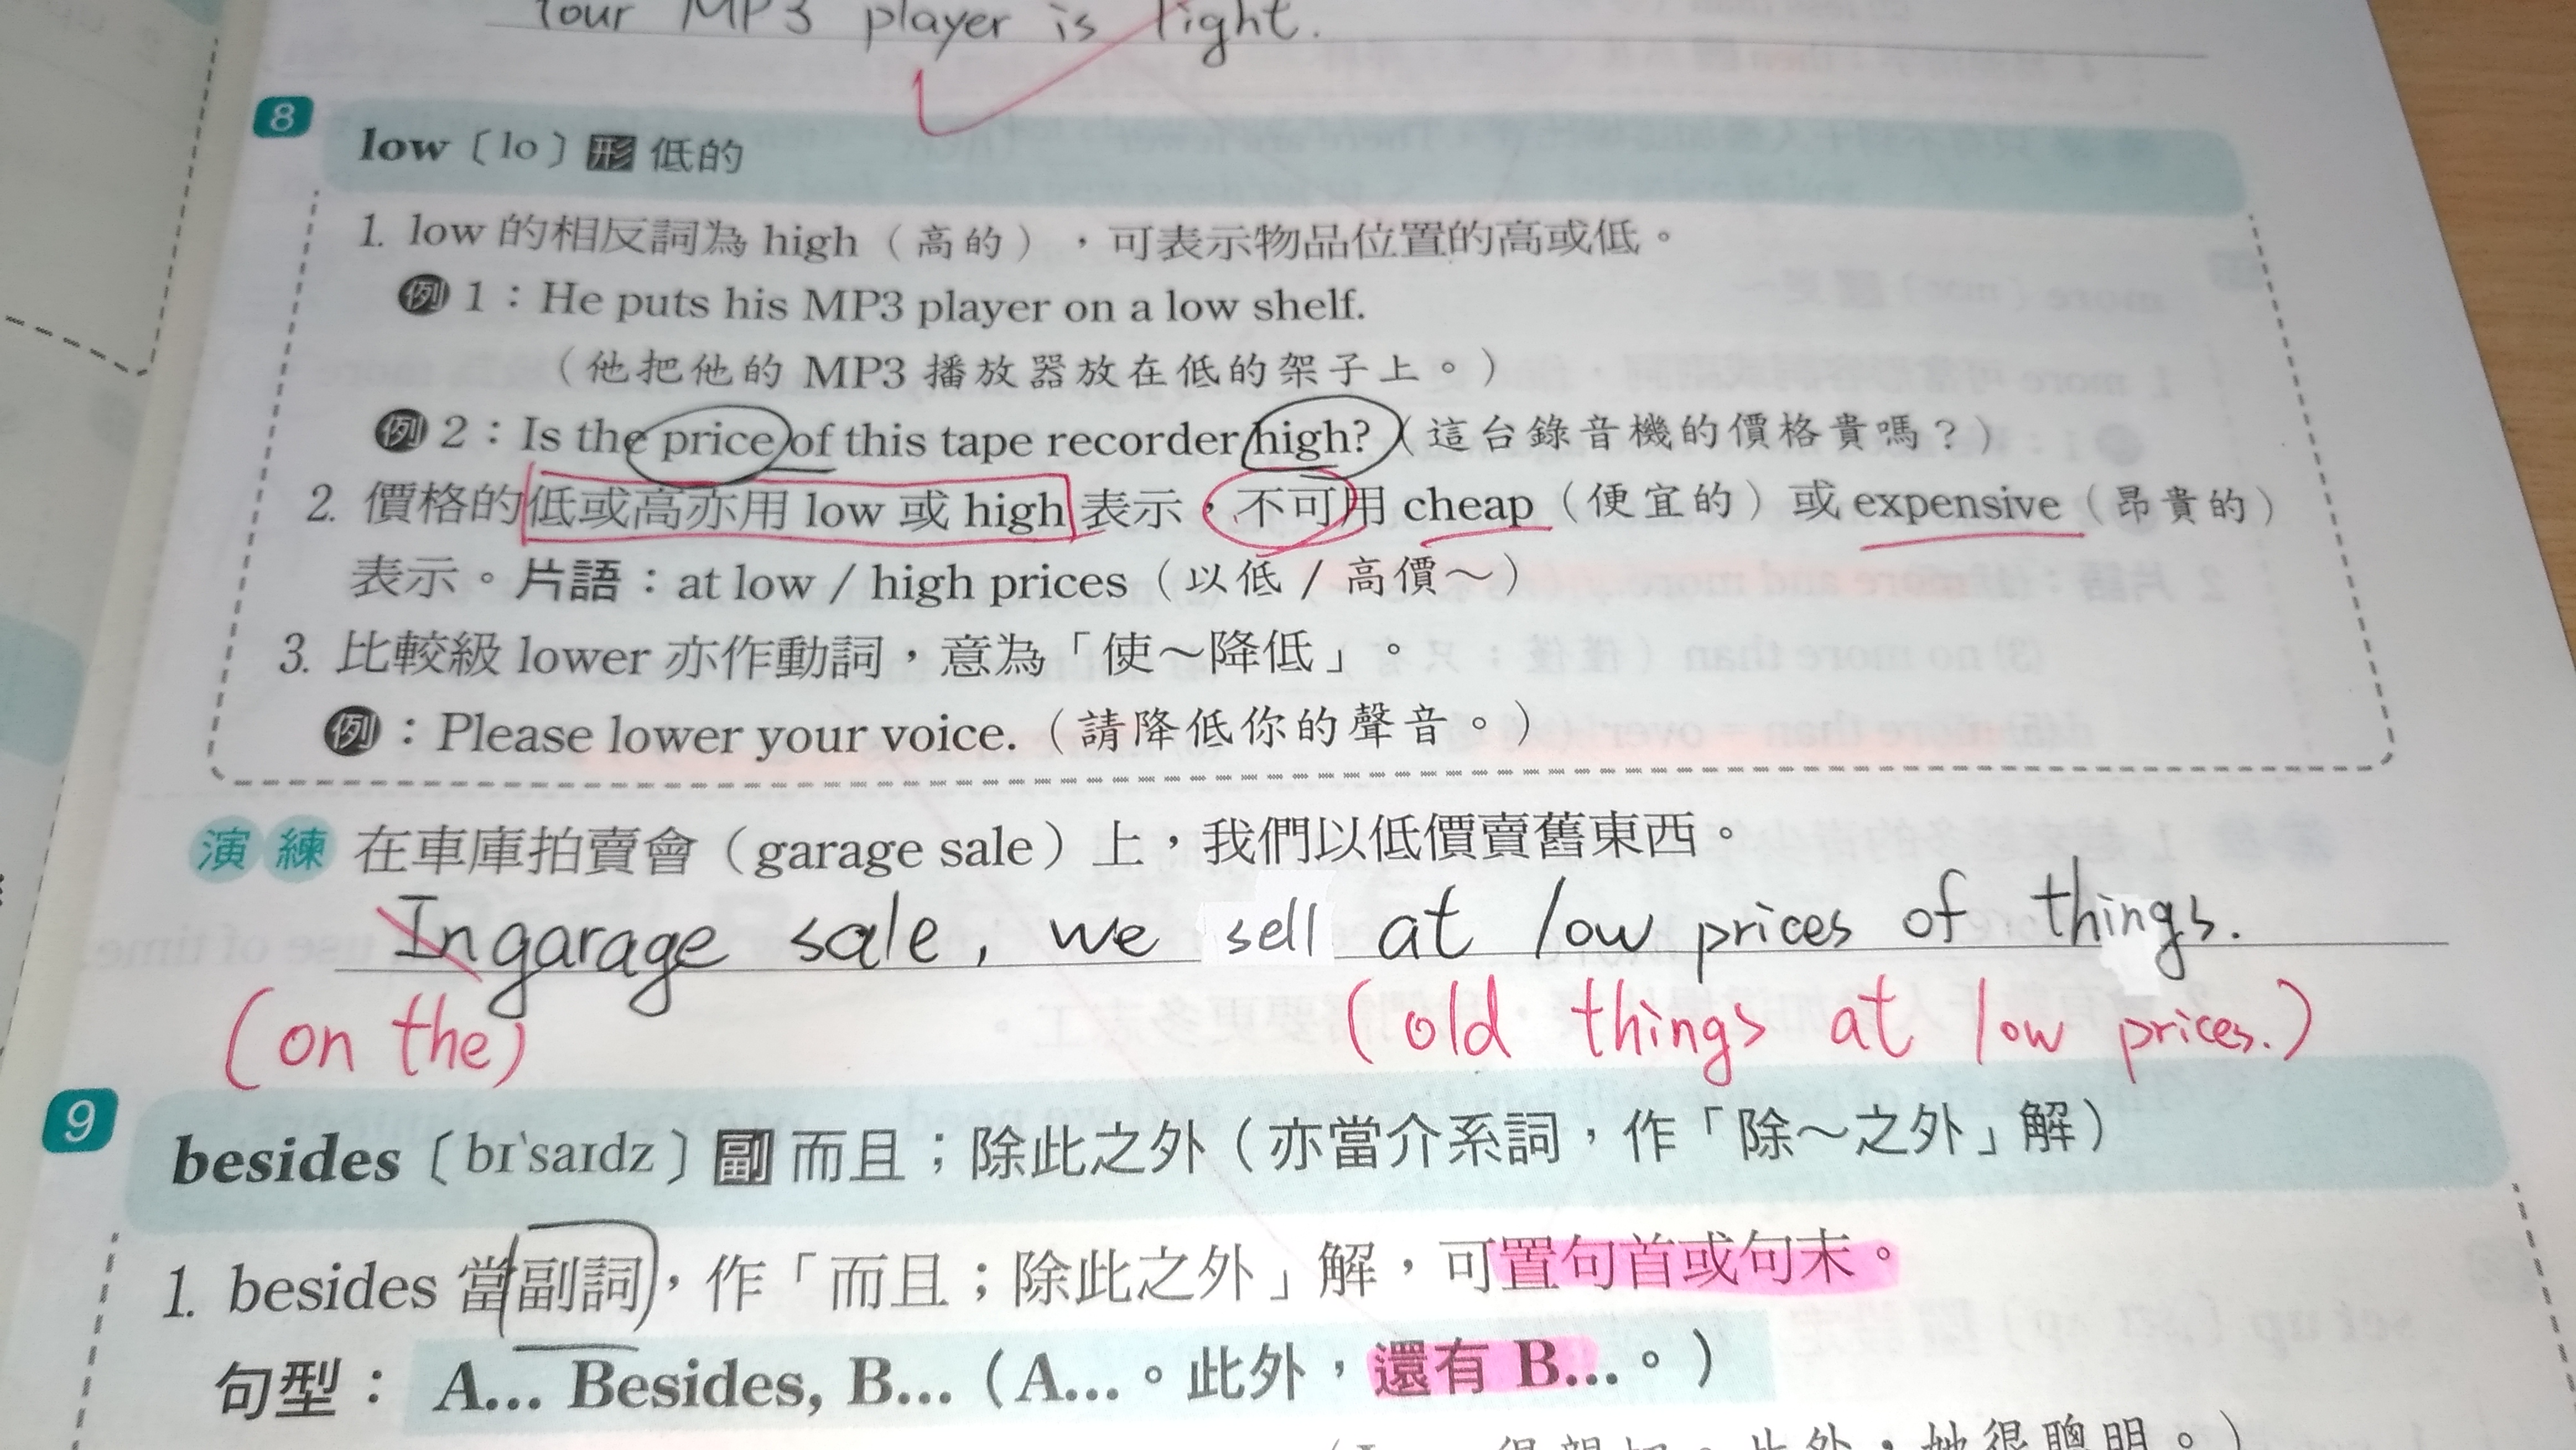 Your MP3 player is light.
8
low〔lo〕形 低的
1. low 的相反詞為 high（高的），可表示物品位置的高或低。
例 1：He puts his MP3 player on a low shelf.
（他把他的 MP3 播放器放在低的架子上。）
例 2：Is the price of this tape recorder high?（這台錄音機的價格貴嗎？）
2. 價格的低或高亦用 low 或 high 表示，不可用 cheap（便宜的）或 expensive（昂貴的）
表示。片語：at low / high prices（以低 / 高價～）
3. 比較級 lower 亦作動詞，意為「使～降低」。
例：Please lower your voice.（請降低你的聲音。）
演練 在車庫拍賣會（garage sale）上，我們以低價賣舊東西。
In garage sale, we sell at low prices of things.
(on the) (old things at low prices.)
9
besides〔bɪˋsaɪdz〕副 而且；除此之外（亦當介系詞，作「除～之外」解）
1. besides 當副詞，作「而且；除此之外」解，可置句首或句末。
句型：A... Besides, B...（A...。此外，還有 B...。）
很親切。此外，她很聰明。）